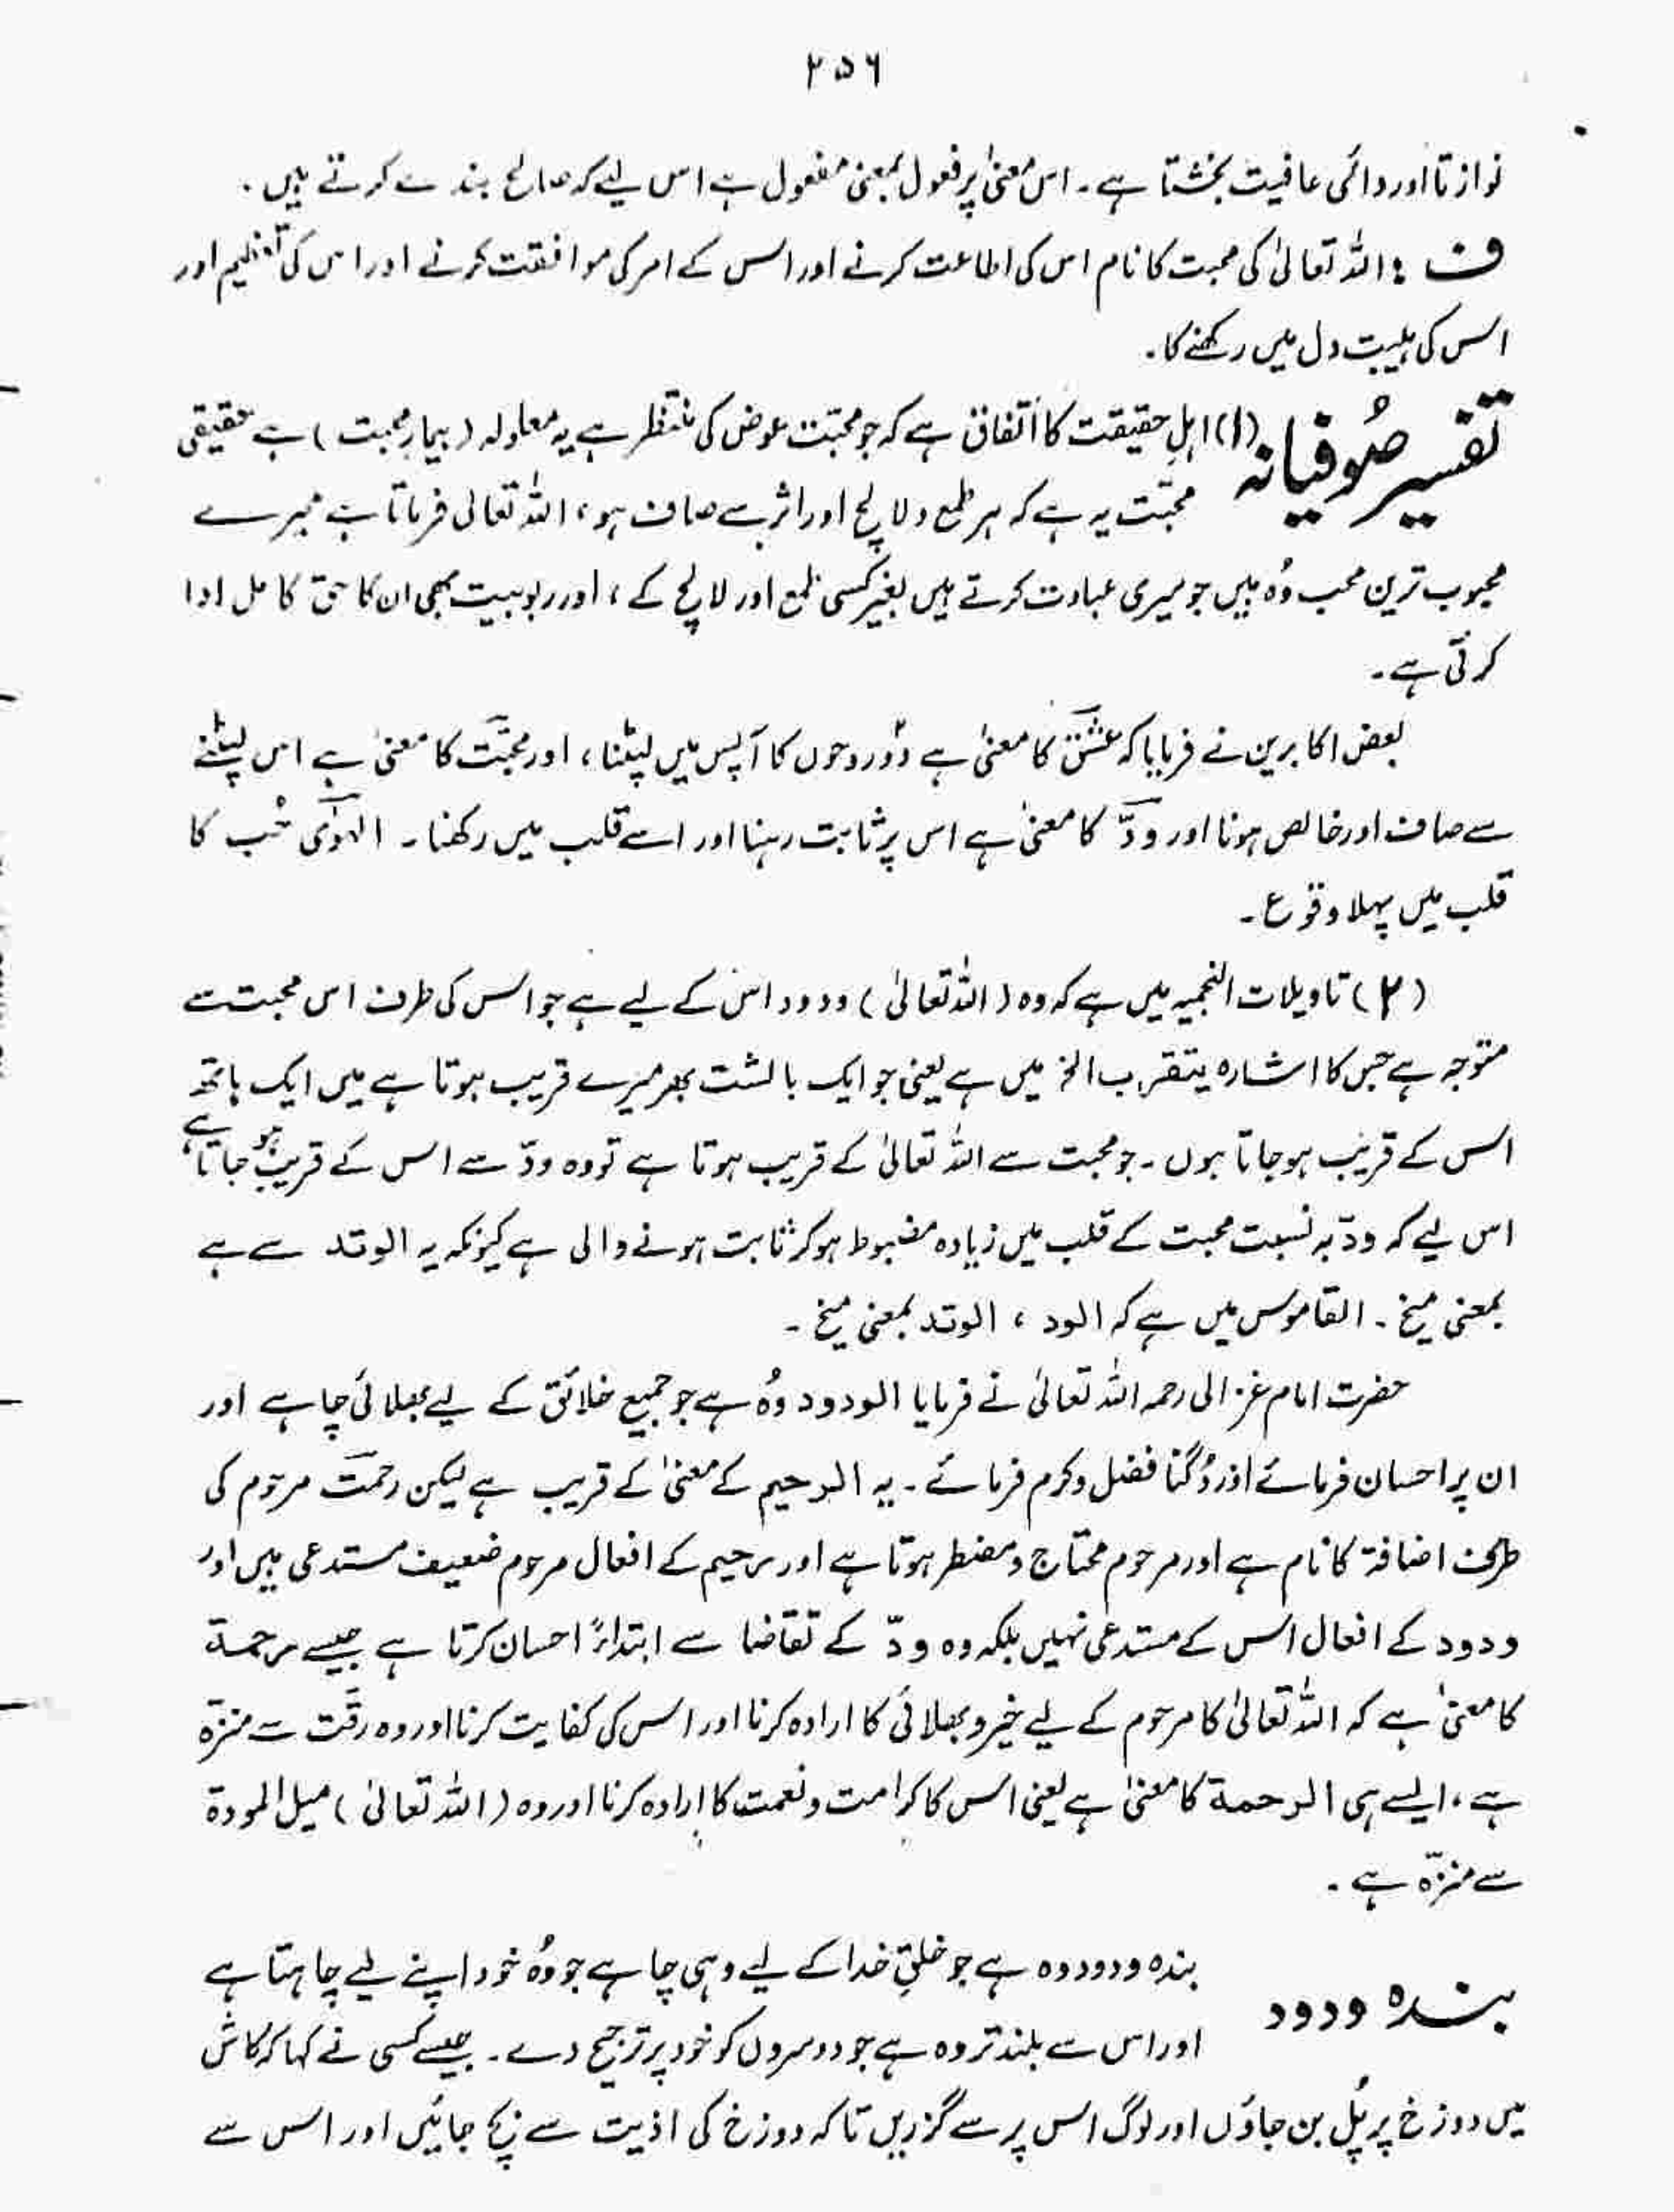 ۲۵۶
نوازتا اور دائمی عافیت بخشتا ہے۔ اس معنیٰ پر فعول بمعنی مفعول ہے اس لیے کہ صالح بندے کرتے ہیں۔
ف : اللہ تعالیٰ کی محبت کا نام اس کی اطاعت کرنے اور اس کے امر کی موافقت کرنے اور اس کی تعظیم اور
اس کی ہیبت دل میں رکھنے کا۔
تفسیر صُوفیانہ (۱) اہلِ حقیقت کا اتفاق ہے کہ جو محبّت عوض کی منتظر ہے یہ معاولہ (بیمار محبت) ہے حقیقی
محبّت یہ ہے کہ ہر طمع و لالچ اور اثر سے صاف ہو، اللہ تعالیٰ فرماتا ہے میرے
محبوب ترین محب وُہ ہیں جو میری عبادت کرتے ہیں بغیر کسی طمع اور لالچ کے، اور ربوبیت بھی ان کا حق کامل ادا
کرتی ہے۔
بعض اکابرین نے فرمایا کہ عشق کا معنیٰ ہے دُو روحوں کا آپس میں لپٹنا، اور محبّت کا معنیٰ ہے اس لپٹنے
سے صاف اور خالص ہونا اور ودّ کا معنیٰ ہے اس پر ثابت رہنا اور اسے قلب میں رکھنا۔ الہوٰی حُب کا
قلب میں پہلا وقوع۔
(۲) تاویلات النجمیہ میں ہے کہ وہ (اللہ تعالیٰ) ودود اس کے لیے ہے جو اس کی طرف اس محبت سے
متوجہ ہے جس کا اشارہ یتقرب الخ میں ہے یعنی جو ایک بالشت بھر میرے قریب ہوتا ہے میں ایک ہاتھ
اس کے قریب ہو جاتا ہوں۔ جو محبت سے اللہ تعالیٰ کے قریب ہوتا ہے تو وہ ودّ سے اس کے قریب ہو جاتا ہے،
اس لیے کہ ودّ بہ نسبت محبت کے قلب میں زیادہ مضبوط ہو کر ثابت ہونے والی ہے کیونکہ یہ الوتد سے ہے
بمعنی میخ۔ القاموس میں ہے کہ الود ، الوتد بمعنی میخ۔
حضرت امام غزالی رحمہ اللہ تعالیٰ نے فرمایا الودود وُہ ہے جو جمیع خلائق کے لیے بھلائی چاہے اور
ان پر احسان فرمائے اور دُگنا فضل و کرم فرمائے۔ یہ الرحیم کے معنیٰ کے قریب ہے لیکن رحمت مرحوم کی
طرف اضافۃ کا نام ہے اور مرحوم محتاج و مضطر ہوتا ہے اور رحیم کے افعال مرحوم ضعیف مستدعی ہیں اور
ودود کے افعال اس کے مستدعی نہیں بلکہ وہ ودّ کے تقاضا سے ابتداءً احسان کرتا ہے جیسے رحمۃ
کا معنیٰ ہے کہ اللہ تعالیٰ کا مرحوم کے لیے خیر و بھلائی کا ارادہ کرنا اور اس کی کفایت کرنا اور وہ رقّت سے منزہ
ہے، ایسے ہی الرحمۃ کا معنیٰ ہے یعنی اس کا کرامت و نعمت کا ارادہ کرنا اور وہ (اللہ تعالیٰ) میل المودۃ
سے منزّہ ہے۔
بندہ ودود بندہ ودود وہ ہے جو خلقِ خدا کے لیے وہی چاہے جو وُہ خود اپنے لیے چاہتا ہے
اور اس سے بلند تر وہ ہے جو دوسروں کو خود پر ترجیح دے۔ جیسے کسی نے کہا کہ کاش
میں دوزخ پر پُل بن جاؤں اور لوگ اس پر سے گزریں تاکہ دوزخ کی اذیت سے بچ جائیں اور اس سے